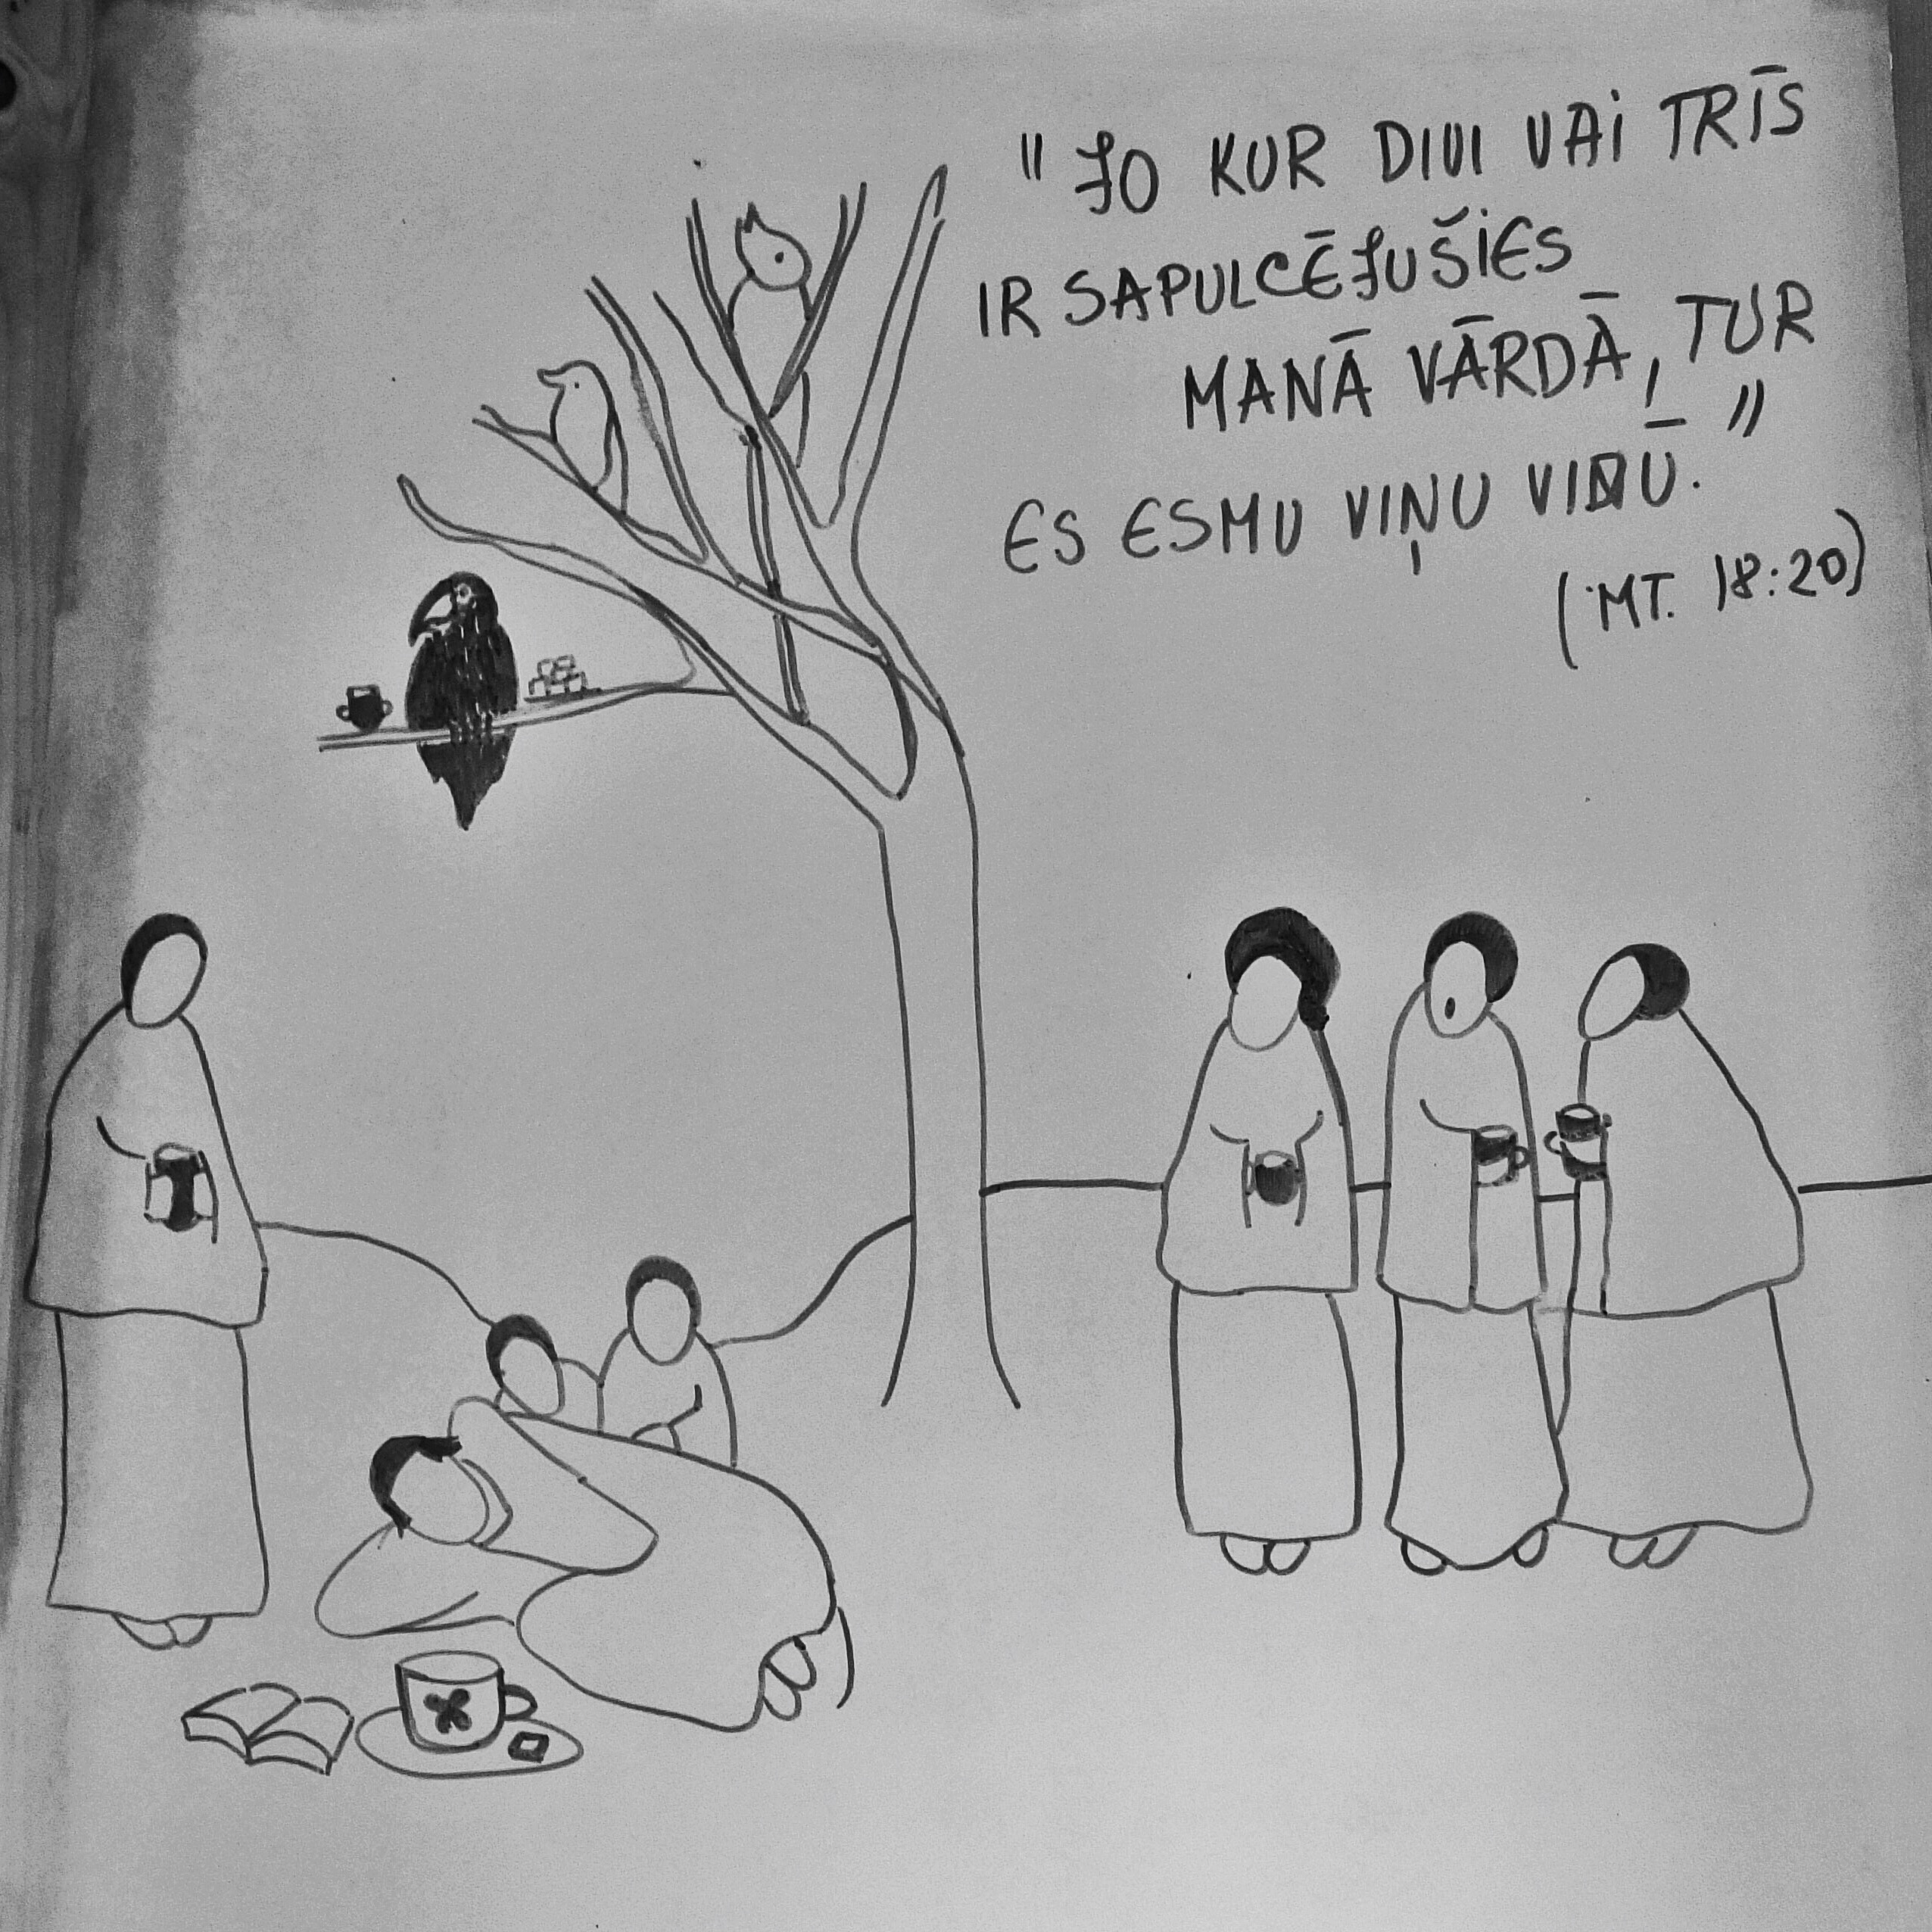 "JO KUR DIVI VAI TRĪS
IR SAPULCĒJUŠIES
MANĀ VĀRDĀ, TUR
ES ESMU VIŅU VIDŪ."
(MT. 18:20)